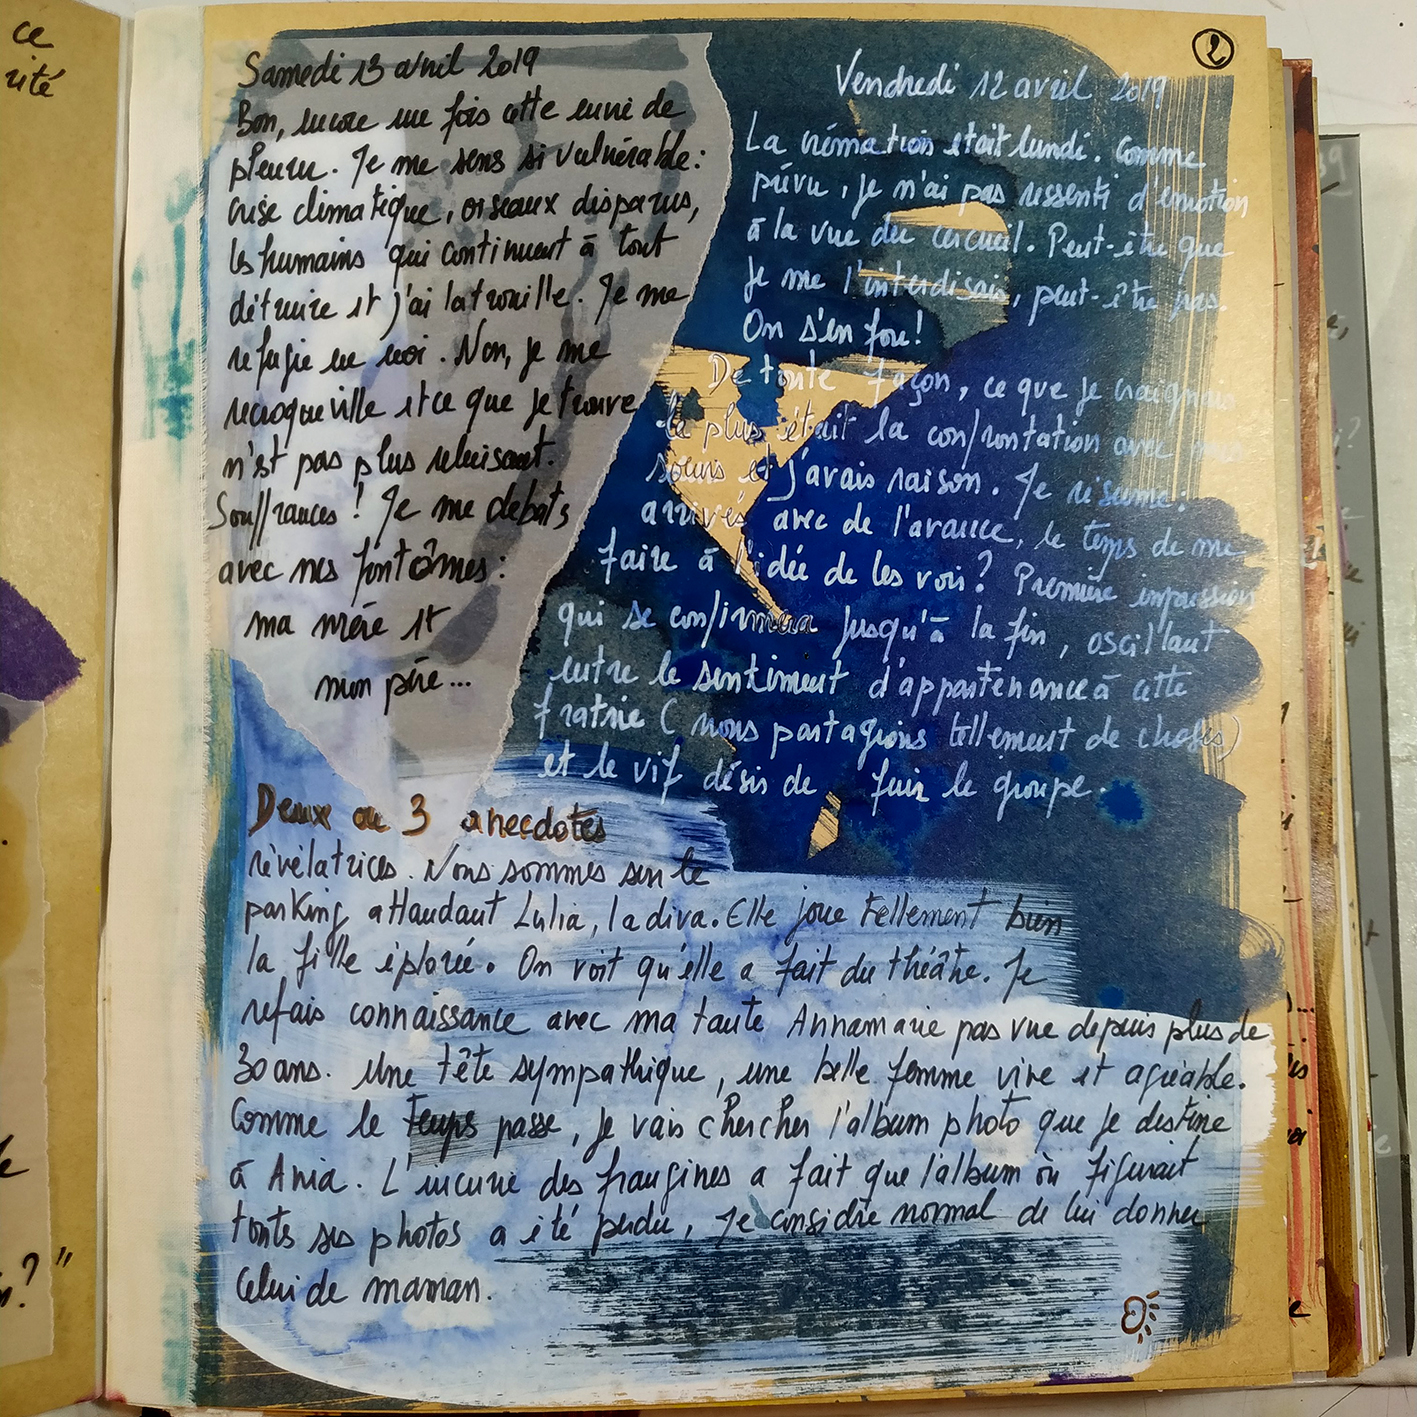 ce
rité
2
Samedi 13 avril 2019
Bon, encore une fois cette envie de
pleurer. Je me sens si vulnérable :
crise climatique, oiseaux disparus,
les humains qui continuent à tout
détruire et j'ai la trouille. Je me
réfugie en moi. Non, je me
recroqueville et ce que je trouve
n'est pas plus reluisant.
Souffrances ! Je me débats
avec mes fantômes :
ma mère et
mon père...
Vendredi 12 avril 2019
La crémation était lundi. Comme
prévu, je n'ai pas ressenti d'émotion
à la vue du cercueil. Peut-être que
je me l'interdisais, peut-être pas.
On s'en fou !
De toute façon, ce que je craignais
le plus était la confrontation avec mes
soeurs et j'avais raison. Je résume :
arrivés avec de l'avance, le temps de me
faire à l'idée de les voir ? Première impression
qui se confirmera jusqu'à la fin, oscillant
entre le sentiment d'appartenance à cette
fratrie (nous partagions tellement de choses)
et le vif désir de fuir le groupe.
Deux ou 3 anecdotes
révélatrices. Nous sommes sur le
parking attendant Lulia, la diva. Elle joue tellement bien
la fille éplorée. On voit qu'elle a fait du théâtre. Je
refais connaissance avec ma tante Annamarie pas vue depuis plus de
30 ans. Une tête sympathique, une belle femme vive et agréable.
Comme le temps passe, je vais chercher l'album photo que je destine
à Ania. L'incurie des frangines a fait que l'album où figurait
toutes ses photos a été perdu, je considère normal de lui donner
celui de maman.
?"